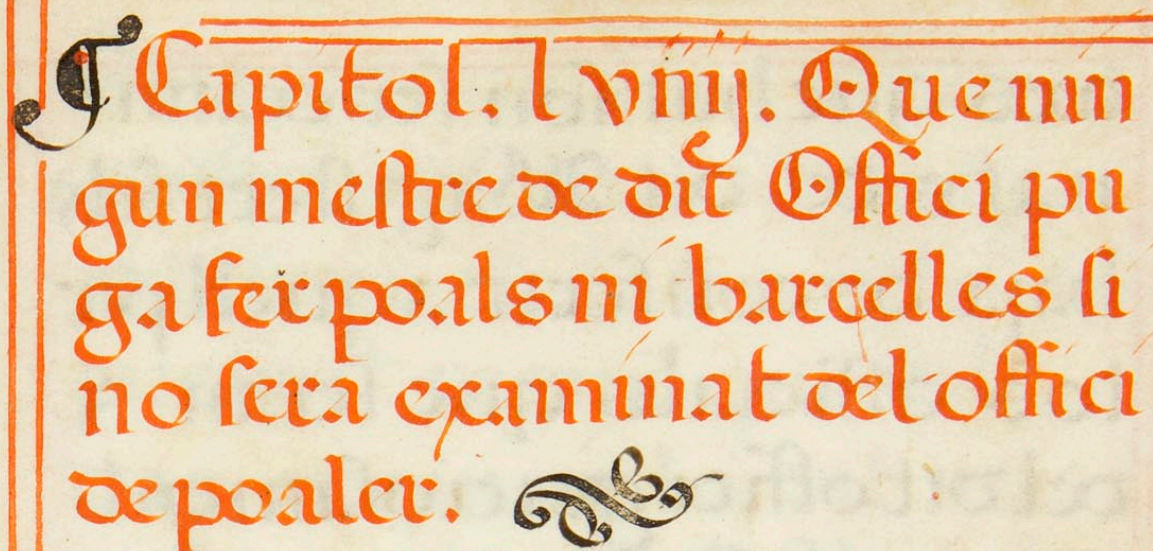 ¶ Capitol. lviiij. Que nin
gun mestre de dit Offici pu
ga fer poals ni barçelles si
no sera examinat del offici
de poaler.